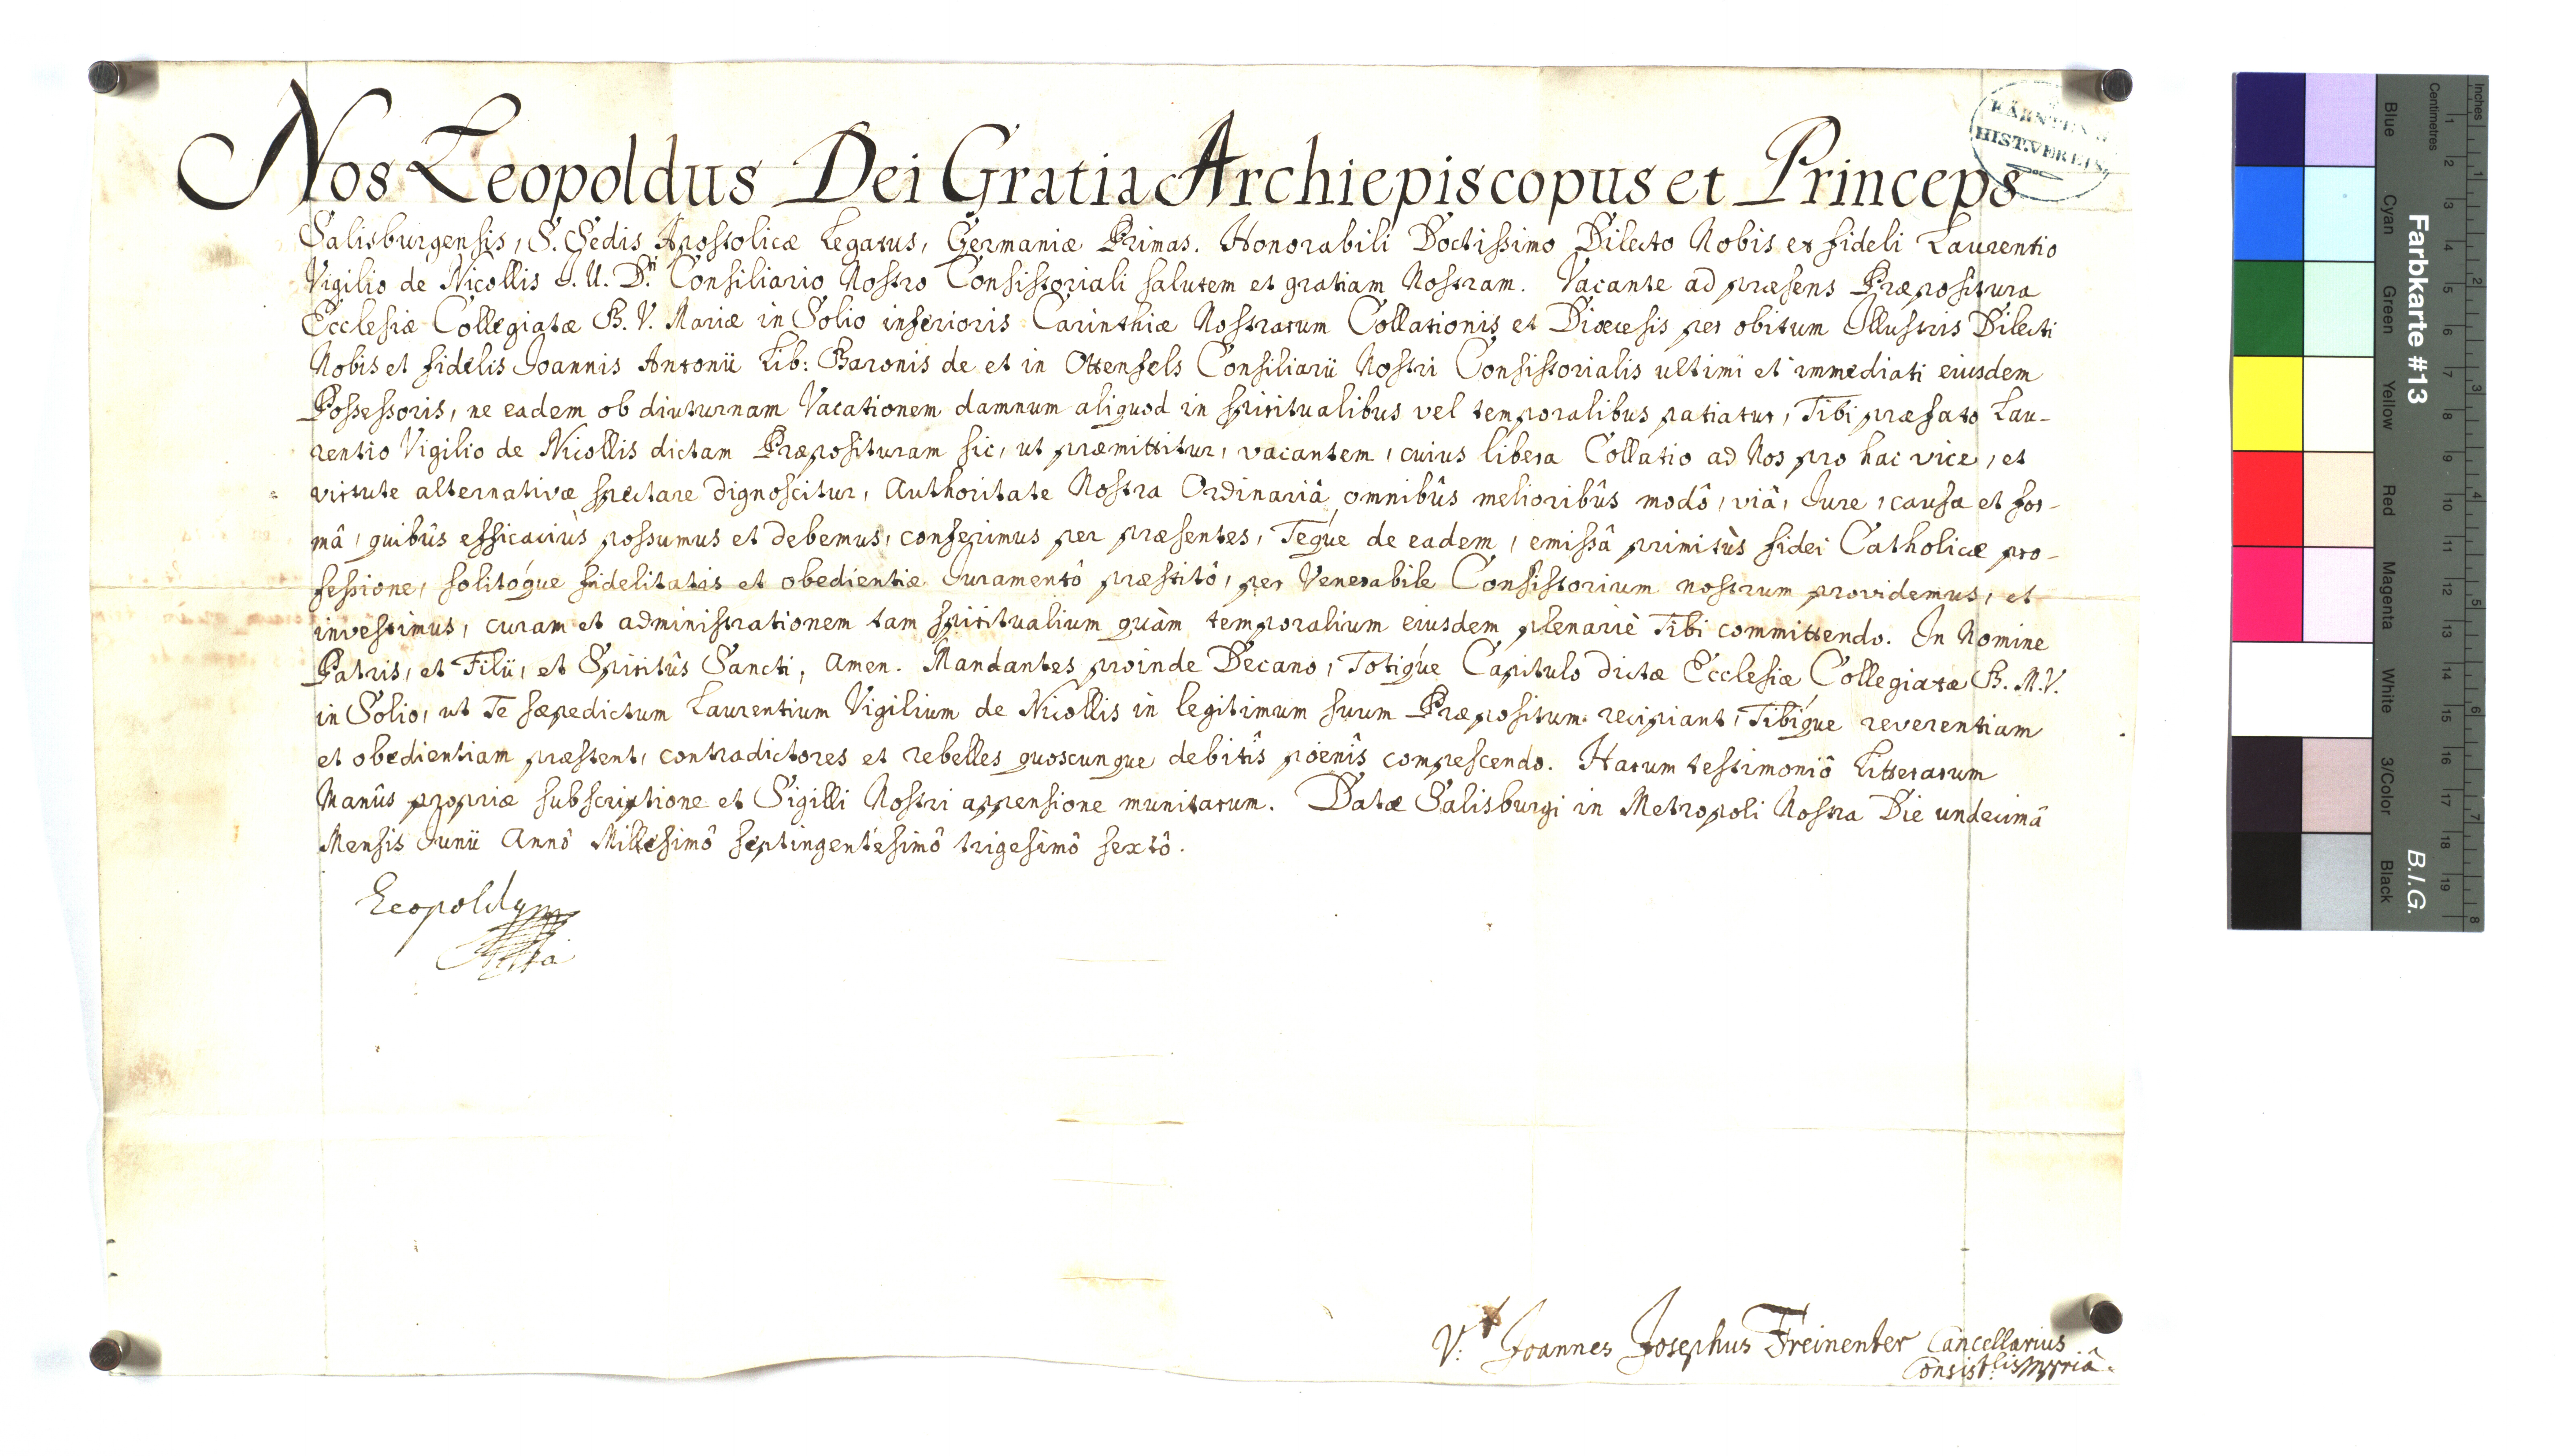 Nos Leopoldus Dei Gratia Archiepiscopus et Princeps
Salisburgensis, S. Sedis Apostolicæ Legatus, Germaniæ Primas. Honorabili Doctissimo Dilecto Nobis et fideli Laurentio
Vigilio de Nicollis J. U. Dri. Consiliario Nostro Consistoriali salutem et gratiam Nostram. Vacante ad præsens Præpositura
Ecclesiæ Collegiatæ B. V. Mariæ in Solio inferioris Carinthiæ Nostrarum Collationis et Diœcesis per obitum Illustris Dilecti
Nobis et fidelis Joannis Antonii Lib: Baronis de et in Ottenfels Consiliarii Nostri Consistorialis ultimi et immediati eiusdem
Possessoris, ne eadem ob diuturnam Vacationem damnum aliquod in spiritualibus vel temporalibus patiatur, Tibi præfato Lau-
rentio Vigilio de Nicollis dictam Præposituram sic, ut præmittitur, vacantem, cuius libera Collatio ad Nos pro hac vice, et
virtute alternativæ spectare dignoscitur, Authoritate Nostra Ordinariâ omnibûs melioribûs modô, viâ, Jure, causa et for-
mâ, quibûs efficaciùs possumus et debemus, conferimus per præsentes, Teque de eadem, emissâ primitùs fidei Catholicæ pro-
fessione, solitoque fidelitatis et obedientiæ Juramentô præstitô, per Venerabile Consistorium nostrum providemus, et
investimus, curam et administrationem tam spiritualium quàm temporalium eiusdem plenariè Tibi committendo. In Nomine
Patris, et Filii, et Spiritûs Sancti, Amen. Mandantes proinde Decano, Totique Capitulo dictæ Ecclesiæ Collegiatæ B. M. V.
in Solio, ut Te sæpedictum Laurentium Vigilium de Nicollis in legitimum suum Præpositum recipiant, Tibique reverentiam
et obedientiam præstent, contradictores et rebelles quoscunque debitîs poenîs compescendo. Harum testimoniô Litterarum
Manûs propriæ subscriptione et Sigilli Nostri appensione munitarum. Datæ Salisburgi in Metropoli Nostra Die undecimâ
Mensis Junii Annô Millesimô septingentesimô trigesimô sextô.
Leopoldus
V: Joannes Josephus Freinenter Cancellarius
Consist:lis
KÄRNTEN
HIST.VEREIN
Farbkarte #13
B.I.G.
Blue Cyan Green Yellow Red Magenta White 3/Color Black
Centimetres 1 2 3 4 5 6 7 8 9 10 11 12 13 14 15 16 17 18 19
Inches 1 2 3 4 5 6 7 8